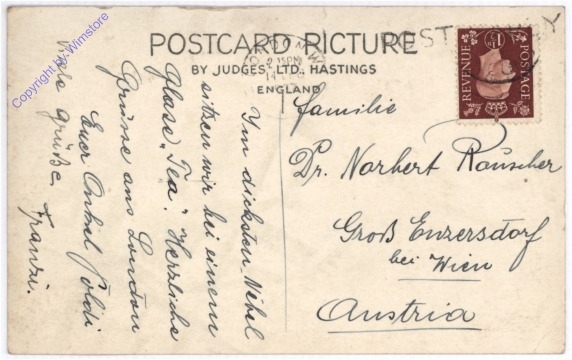 POSTCARD PICTURE
BY JUDGES, LTD., HASTINGS
ENGLAND
LONDON
2 15PM
POST EARLY
REVENUE
POSTAGE
Familie
Dr. Norbert Rauscher
Groß Enzersdorf
bei Wien
Austria
Ym dicksten Nebel
sitzen wir bei einem
Glase „Tea“. Herzliche
Grüsse aus London
Euer Onkel Poldi
Viele Grüße Franzi.
Copyright by Wimstore